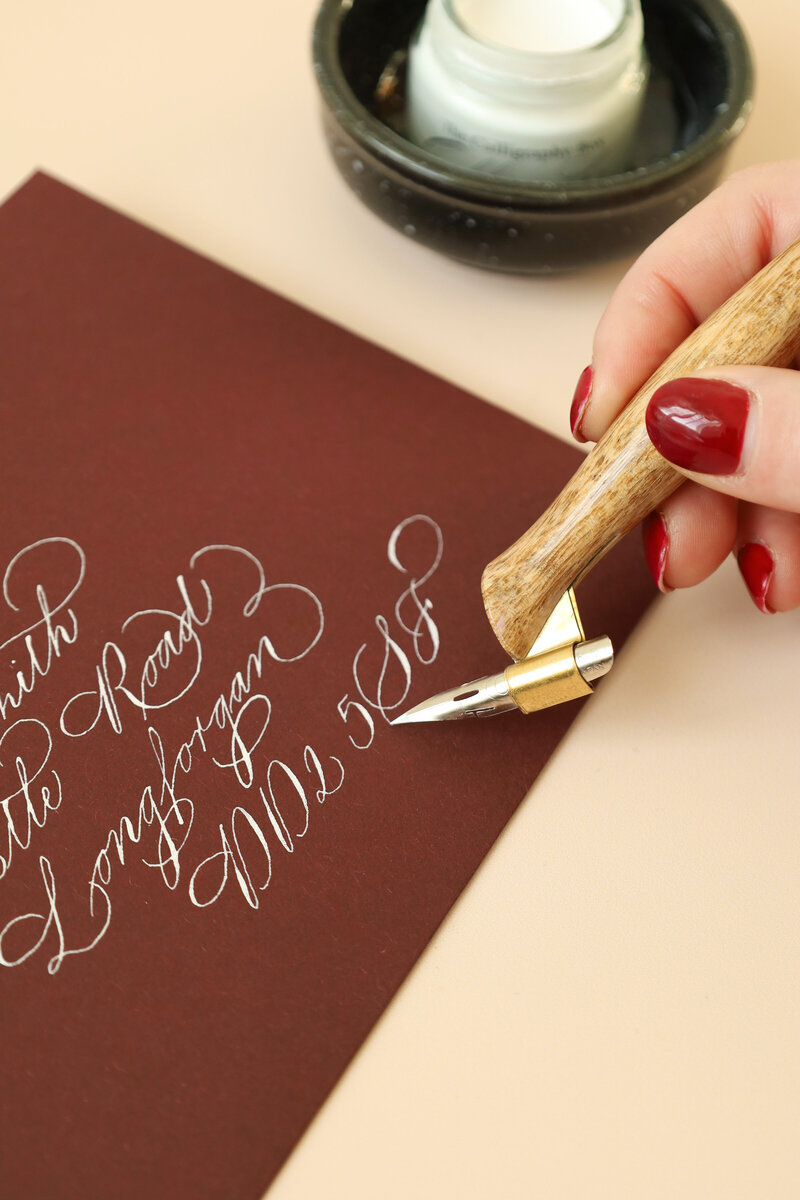 mith
Road
tte
Longforgan
DD2 5SF
The Calligraphy